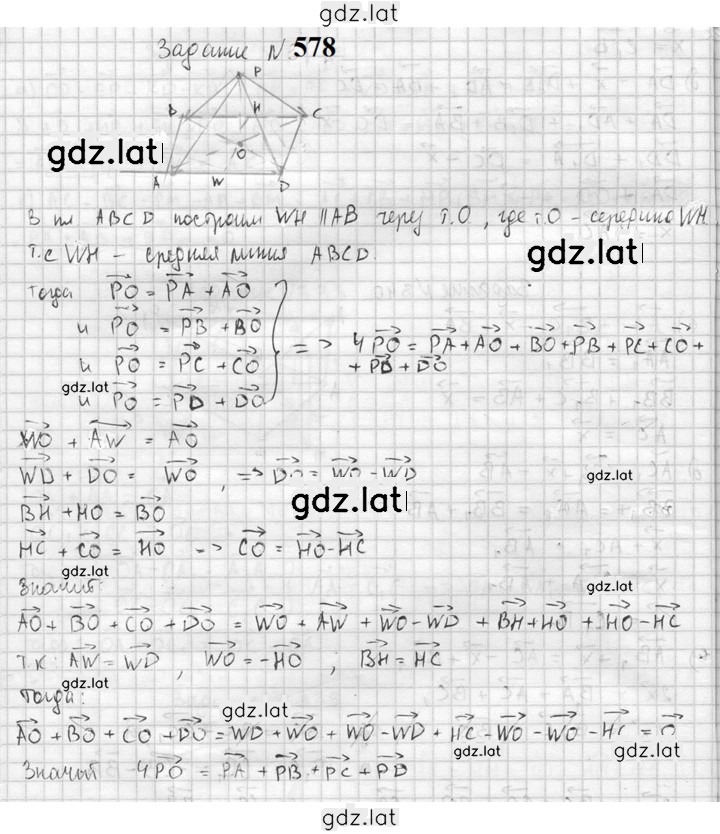 gdz.lat
Задание N 578
P
B H C
gdz.lat
O
A W D
В пл ABCD построим WH || AB через т.O, где т.O - середина WH.
т.е WH - средняя линия ABCD.
gdz.lat
Тогда PO = PA + AO
и PO = PB + BO
и PO = PC + CO
gdz.lat
и PO = PD + DO
=> 4PO = PA + AO + BO + PB + PC + CO +
+ PD + DO
WO + AW = AO
WD + DO = WO, => DO = WO - WD
gdz.lat
gdz.lat
BH + HO = BO
HC + CO = HO -> CO = HO - HC
gdz.lat
Значит:
gdz.lat
AO + BO + CO + DO = WO + AW + WO - WD + BH + HO + HO - HC
т.к: AW = WD, WO = -HO, BH = HC
gdz.lat
Тогда:
gdz.lat
AO + BO + CO + DO = WD + WO + WO - WD + HC - WO - WO - HC = O
gdz.lat
gdz.lat
Значит 4PO = PA + PB + PC + PD
gdz.lat